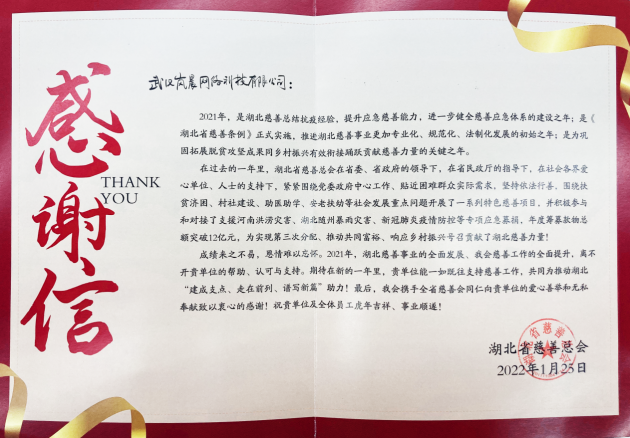 感谢信
THANK
YOU
武汉岚晨网络科技有限公司：
2021年，是湖北慈善总结抗疫经验，提升应急慈善能力，进一步健全慈善应急体系的建设之年；是《
湖北省慈善条例》正式实施，推进湖北慈善事业更加专业化、规范化、法制化发展的初始之年；是为巩
固拓展脱贫攻坚成果同乡村振兴有效衔接踊跃贡献慈善力量的关键之年。
在过去的一年里，湖北省慈善总会在省委、省政府的领导下，在省民政厅的指导下，在社会各界爱
心单位、人士的支持下，紧紧围绕党委政府中心工作，贴近困难群众实际需求，坚持依法行善，围绕扶
贫济困、村社建设、助医助学、安老扶幼等社会发展重点问题开展了一系列特色慈善项目，并积极参与
和对接了支援河南洪涝灾害、湖北随州暴雨灾害、新冠肺炎疫情防控等专项应急募捐，年度筹募款物总
额突破12亿元，为实现第三次分配、推动共同富裕、响应乡村振兴号召贡献了湖北慈善力量！
成绩来之不易，恩情难以忘怀。2021年，湖北慈善事业的全面发展、我会慈善工作的全面提升，离不
开贵单位的帮助、认可与支持。期待在新的一年里，贵单位能一如既往支持慈善工作，共同为推动湖北
“建成支点、走在前列、谱写新篇”助力！最后，我会携手全省慈善会同仁向贵单位的爱心善举和无私
奉献致以衷心的感谢！祝贵单位及全体员工虎年吉祥、事业顺遂！
湖北省慈善总会
2022年1月25日